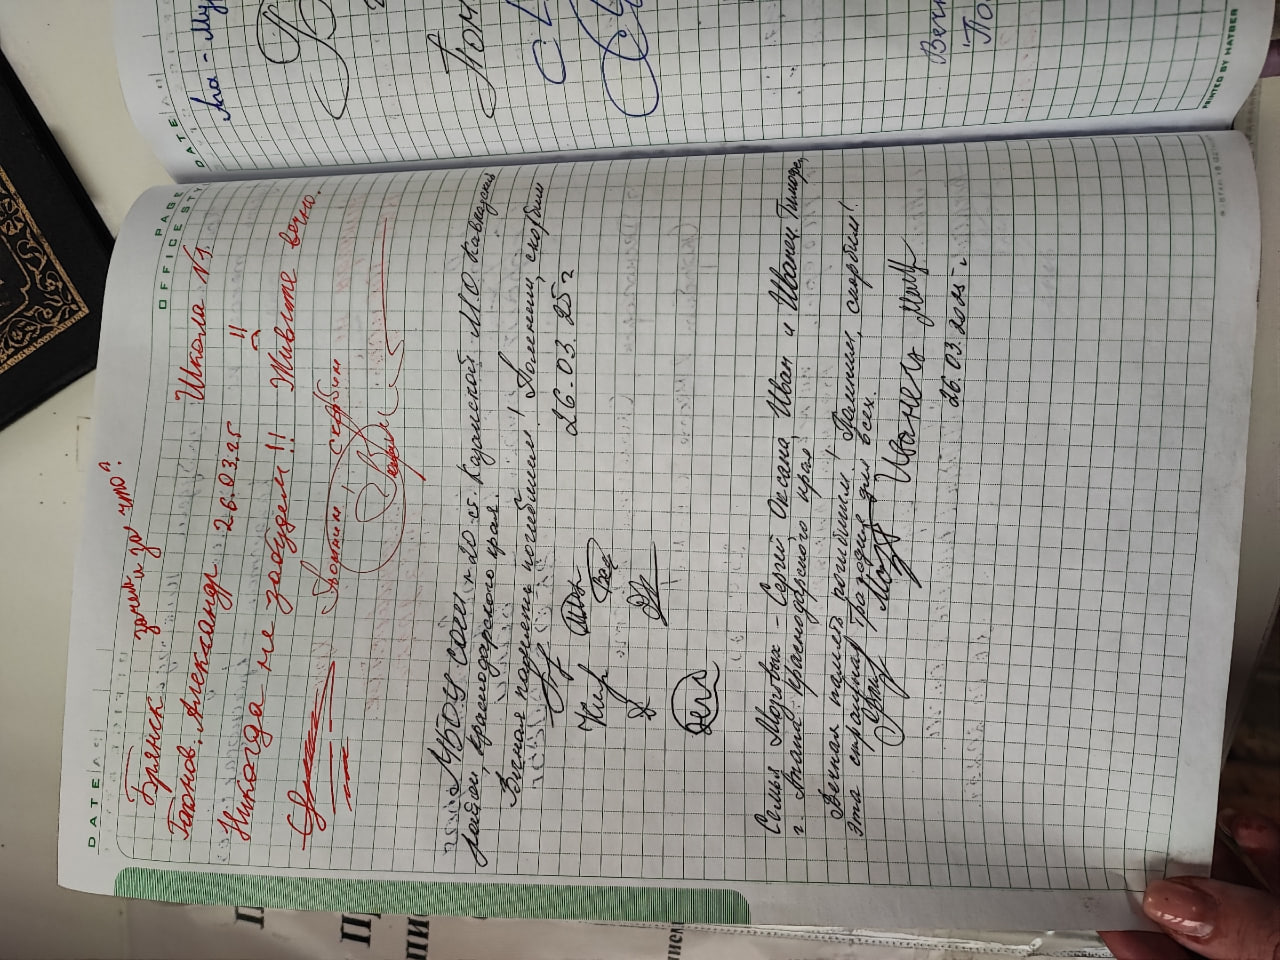 DATE
PAGE
OFFICESTY
зачем и за что?
Брянск
Александр 26.03.25 Школа №1.
Никогда не забудем!! Живите вечно.
Помним скорбим
МБОУ СОШ № 20 ст. Казанской МО Кавказский
район, Краснодарского края.
Вечная память погибшим! Помним, скорбим
26.03.25г
Семья Мозговых - Сергей Оксана, Иван и Иванец Тимофей,
г. Анапа Краснодарского края
Вечная память погибшим! Помним, скорбим!
Эта страшная трагедия для всех.
Иванец
26.03.2025 г.
DATE
PRINTED BY HATBER